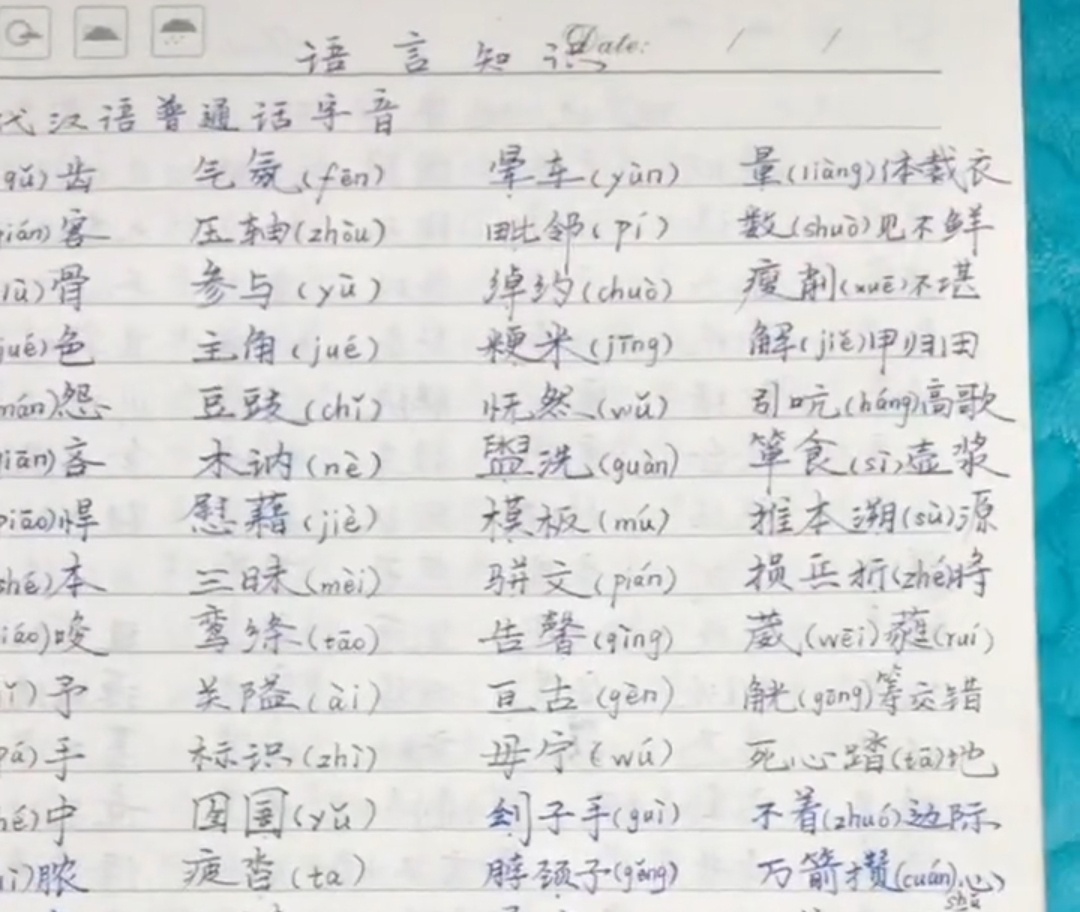 Date: / /
语言知识
代汉语普通话字音
(qǔ)齿 气氛(fēn) 晕车(yùn) 量(liàng)体裁衣
(qián)客 压轴(zhòu) 毗邻(pí) 数(shuò)见不鲜
(lǜ)骨 参与(yù) 绰约(chuò) 瘦削(xuē)不堪
(jué)色 主角(jué) 粳米(jīng) 解(jiě)甲归田
(mán)怨 豆豉(chǐ) 怃然(wǔ) 引吭(háng)高歌
(qiān)吝 木讷(nè) 盥洗(guàn) 箪食(sì)壶浆
(piāo)悍 慰藉(jiè) 模板(mú) 推本溯(sù)源
(shé)本 三昧(mèi) 骈文(pián) 损兵折(zhé)将
(iáo)唆 鸾绦(tāo) 告罄(qìng) 葳(wēi)蕤(ruí)
(jǐ)予 关隘(ài) 亘古(gèn) 觥(gōng)筹交错
(pá)手 标识(zhì) 毋宁(wú) 死心踏(tā)地
(hé)中 囹圄(yǔ) 刽子手(guì) 不着(zhuó)边际
脓 疲沓(ta) 脖颈子(gěng) 万箭攒(cuán)心